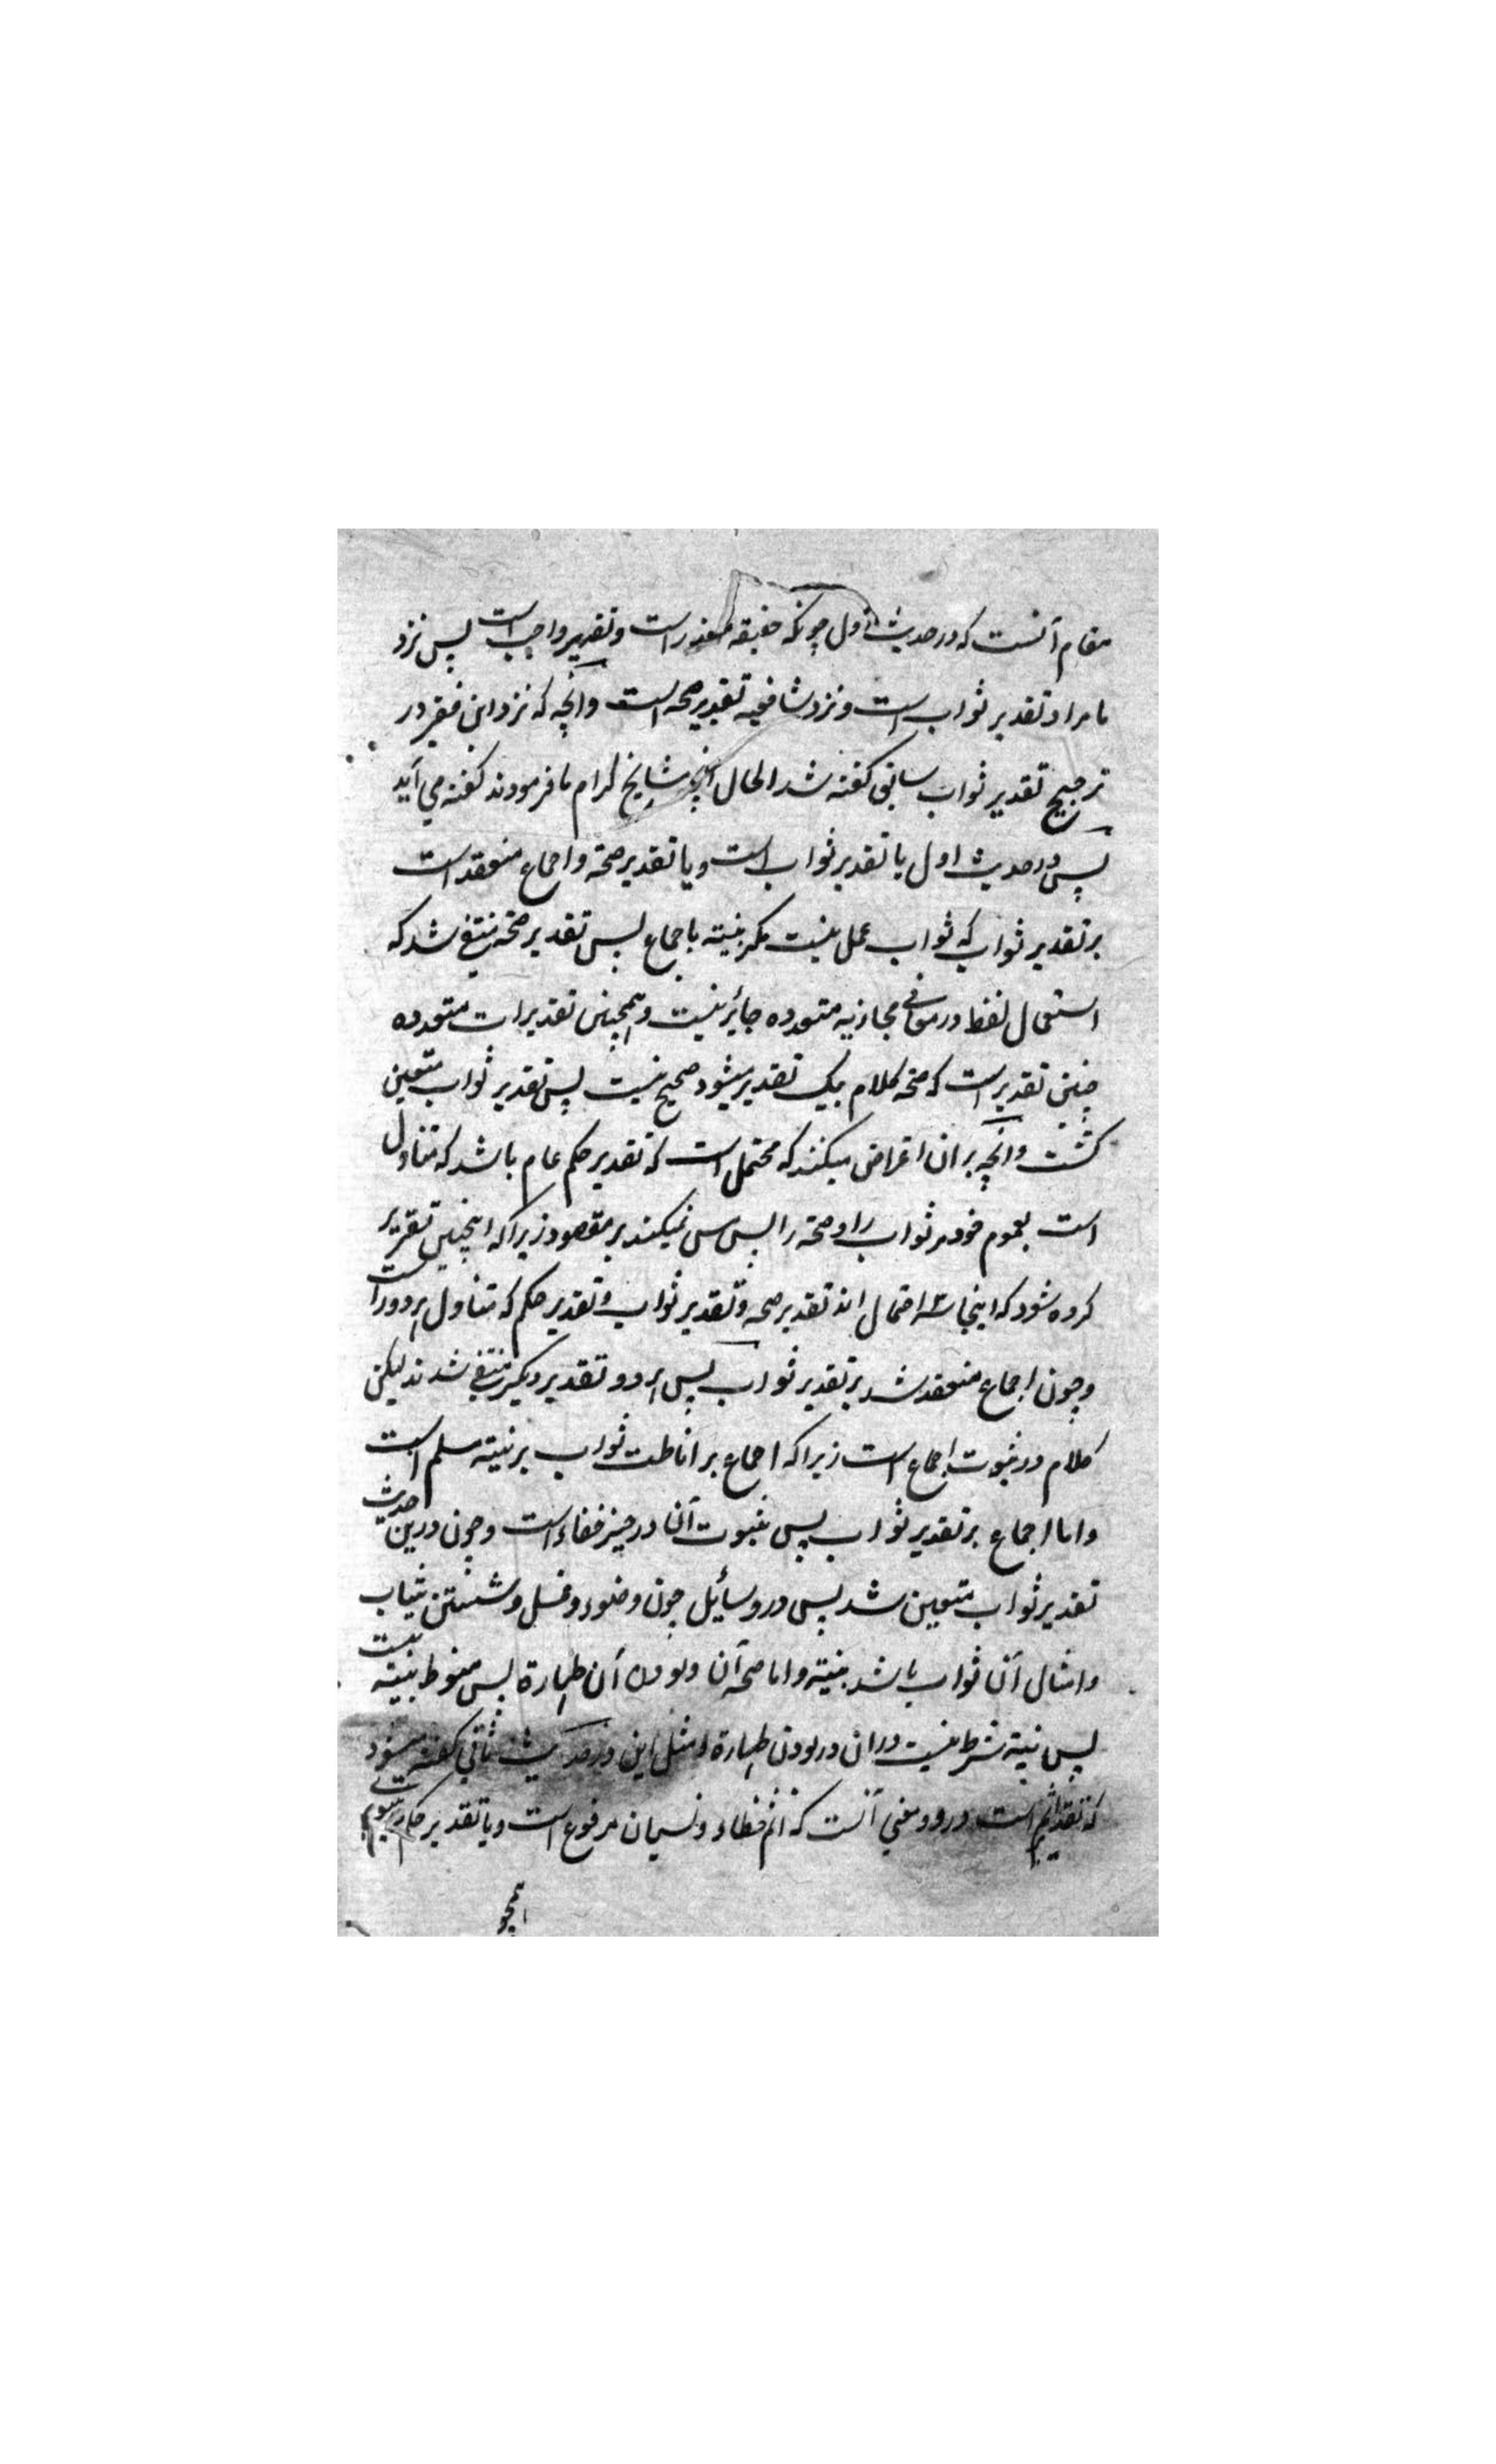 مقام آنست که در حدیث اول چونکه حقیقه متعذر است و تقدیر واجب است پس نزد
ما مراد تقدیر ثواب است و نزد شافعیه تقدیر صحه است وانچه که نزد این فقیر در
ترجیح تقدیر ثواب سابق گفته شد الحال انچه مشایخ کرام ما فرمودند گفته می آید
پس در حدیث اول یا تقدیر ثواب است و یا تقدیر صحة و اجماع منعقد است
بر تقدیر ثواب که ثواب عمل نیست مکر بنیته باجماع پس تقدیر صحة منتفی شد که
استعمال لفظ در معانی مجازیه متعدده جائز نیست و همچنین تقدیرات متعدده
چنین تقدیر است که صحة کلام بیک تقدیر میشود صحیح نیست پس تقدیر ثواب متعین
کشت وانچه بران اعراض میکنند که محتمل است که تقدیر حکم عام باشد که متناول
است بعموم خود مر ثواب را و صحة را پس مس نمیکند بر مقصود زیرا که اینچنین تقریر
کرده شود که اینجا سه احتمال اند تقدیر صحه و تقدیر ثواب و تقدیر حکم که متناول هر دو را است
و چون اجماع منعقد شد بر تقدیر ثواب پس هر دو تقدیر دیکر منتفی شدند لیکن
کلام در ثبوت اجماع است زیرا که اجماع بر اناطت ثواب بر نیته مسلم است
و اما اجماع بر تقدیر ثواب پس ثبوت آن در حیز خفاء است و چون درین حدیث
تقدیر ثواب متعین شد پس در وسائیل چون وضوء و غسل و شستن ثیاب
و امثال آن ثواب باشد بنیته و اما صحه آن و بودن آن طهارة پس منوط بنیته نیست
پس نیته شرط نیست دران در بودن طهارة و مثل این در حدیث ثانی گفته میشود
که تقدیر اثم است درو و معنی آنست که اثم خطاء و نسیان مرفوع است و یا تقدیر حکم
همچو